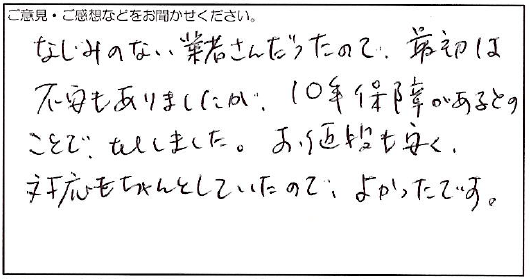 ご意見・ご感想などをお聞かせください。
なじみのない業者さんだったので、最初は
不安もありましたが、10年保障があるとの
ことで、TELしました。お値段も安く、
対応もちゃんとしていたので、よかったです。